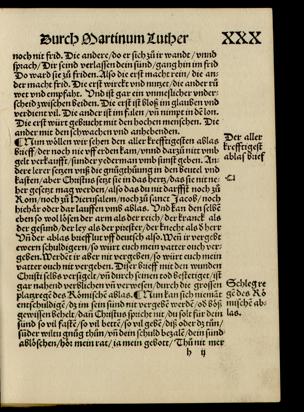 Durch Martinum Luther XXX
noch nit frid. Die andere/do er sich zů ir wandt/vnnd
sprach/Dir seind verlassen dein sünd/gang hin im frid
Do ward sie zů friden. Also die erst macht rein/die an-
der macht frid. Die erst würckt vnd nutzet/die ander rů
wet vnd empfabt. Vnd ist gar ein vnmeßlicher vnder-
scheid zwischen beiden. Die erst ist bloß im glauben vnd
verdient vil. Die ander ist im falen/vñ nimpt in dẽ lon.
Die erst würt gebraucht mit den hochen menschen. Die
ander mit den schwachen vnd anhebenden.
¶ Nun wöllen wir sehen den aller krefftigesten ablas
brieff/der noch nie vff erden kam/vnnd darzů nit vmb
gelt verkaufft/sunder yederman vmb sunst geben. An-
dere lerer setzen vnß die gnůgthůung in den beutel vnd
kasten/aber Christus setzt sie in das hertz/das sie nit ne-
her gesetzt mag werden/also das du nit darffst noch zů
Rom/noch zů Hierusalem/noch zů sanct Jacob/noch
hiehär oder dar lauffen vmb ablas. Vnd kan den selbẽ
eben so wol lösen der arm als der reich/der kranck als
der gesund/der ley als der priester/der knecht als d herr
Vñ der ablas brieff lut vff deutsch also. Weñ ir vergebt
ewern schuldigern/so würt euch mein vatter ouch ver-
geben. Werdet ir aber nit vergeben/so würt euch mein
vatter ouch nit vergeben. Diser brieff mit den wunden
Christi selbs versigelt/vñ durch seinen tod bestetiget/ist
gar nahend verblichen vñ verwesen/durch die grossen
platzregẽ des Römische ablas. ¶ Nun kan sich niemãt
entschuldigẽ/dz im sein sünd nit vergebẽ werdẽ/ob böß
gewissen behelt/dañ Christus spricht nit/du solt für dein
sünd so vil fastẽ/so vil bettẽ/so vil gebẽ/diß oder dz tůn/
sunder wiltu gnůg thůn/vñ dein schuld bezalẽ/dein sünd
ablöschen/hör mein rat/ia mein gebott/Thů nit mer
h ij
Der aller
krefftigest
ablas brief
Schlegre
gẽ des Rö
mische ab-
las.